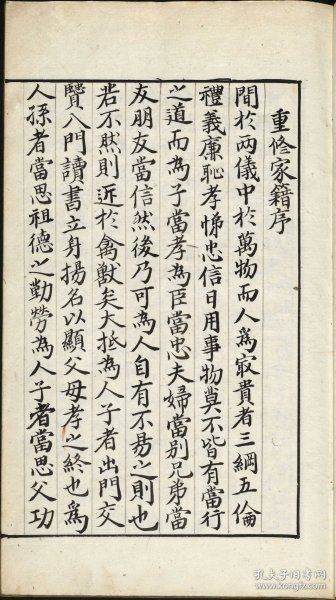 重修家籍序
間於兩儀中於萬物而人爲㝡貴者三綱五倫
禮義廉恥孝悌忠信日用事物莫不皆有當行
之道而為子當孝為臣當忠夫婦當别兄弟當
友朋友當信然後乃可為人自有不易之則也
若不然則近於禽獸矣大抵為人子者出門交
賢入門讀書立身揚名以顯父母孝之終也爲
人孫者當思祖德之勤勞為人子者當思父功
孔夫子旧书网
kongfz.com